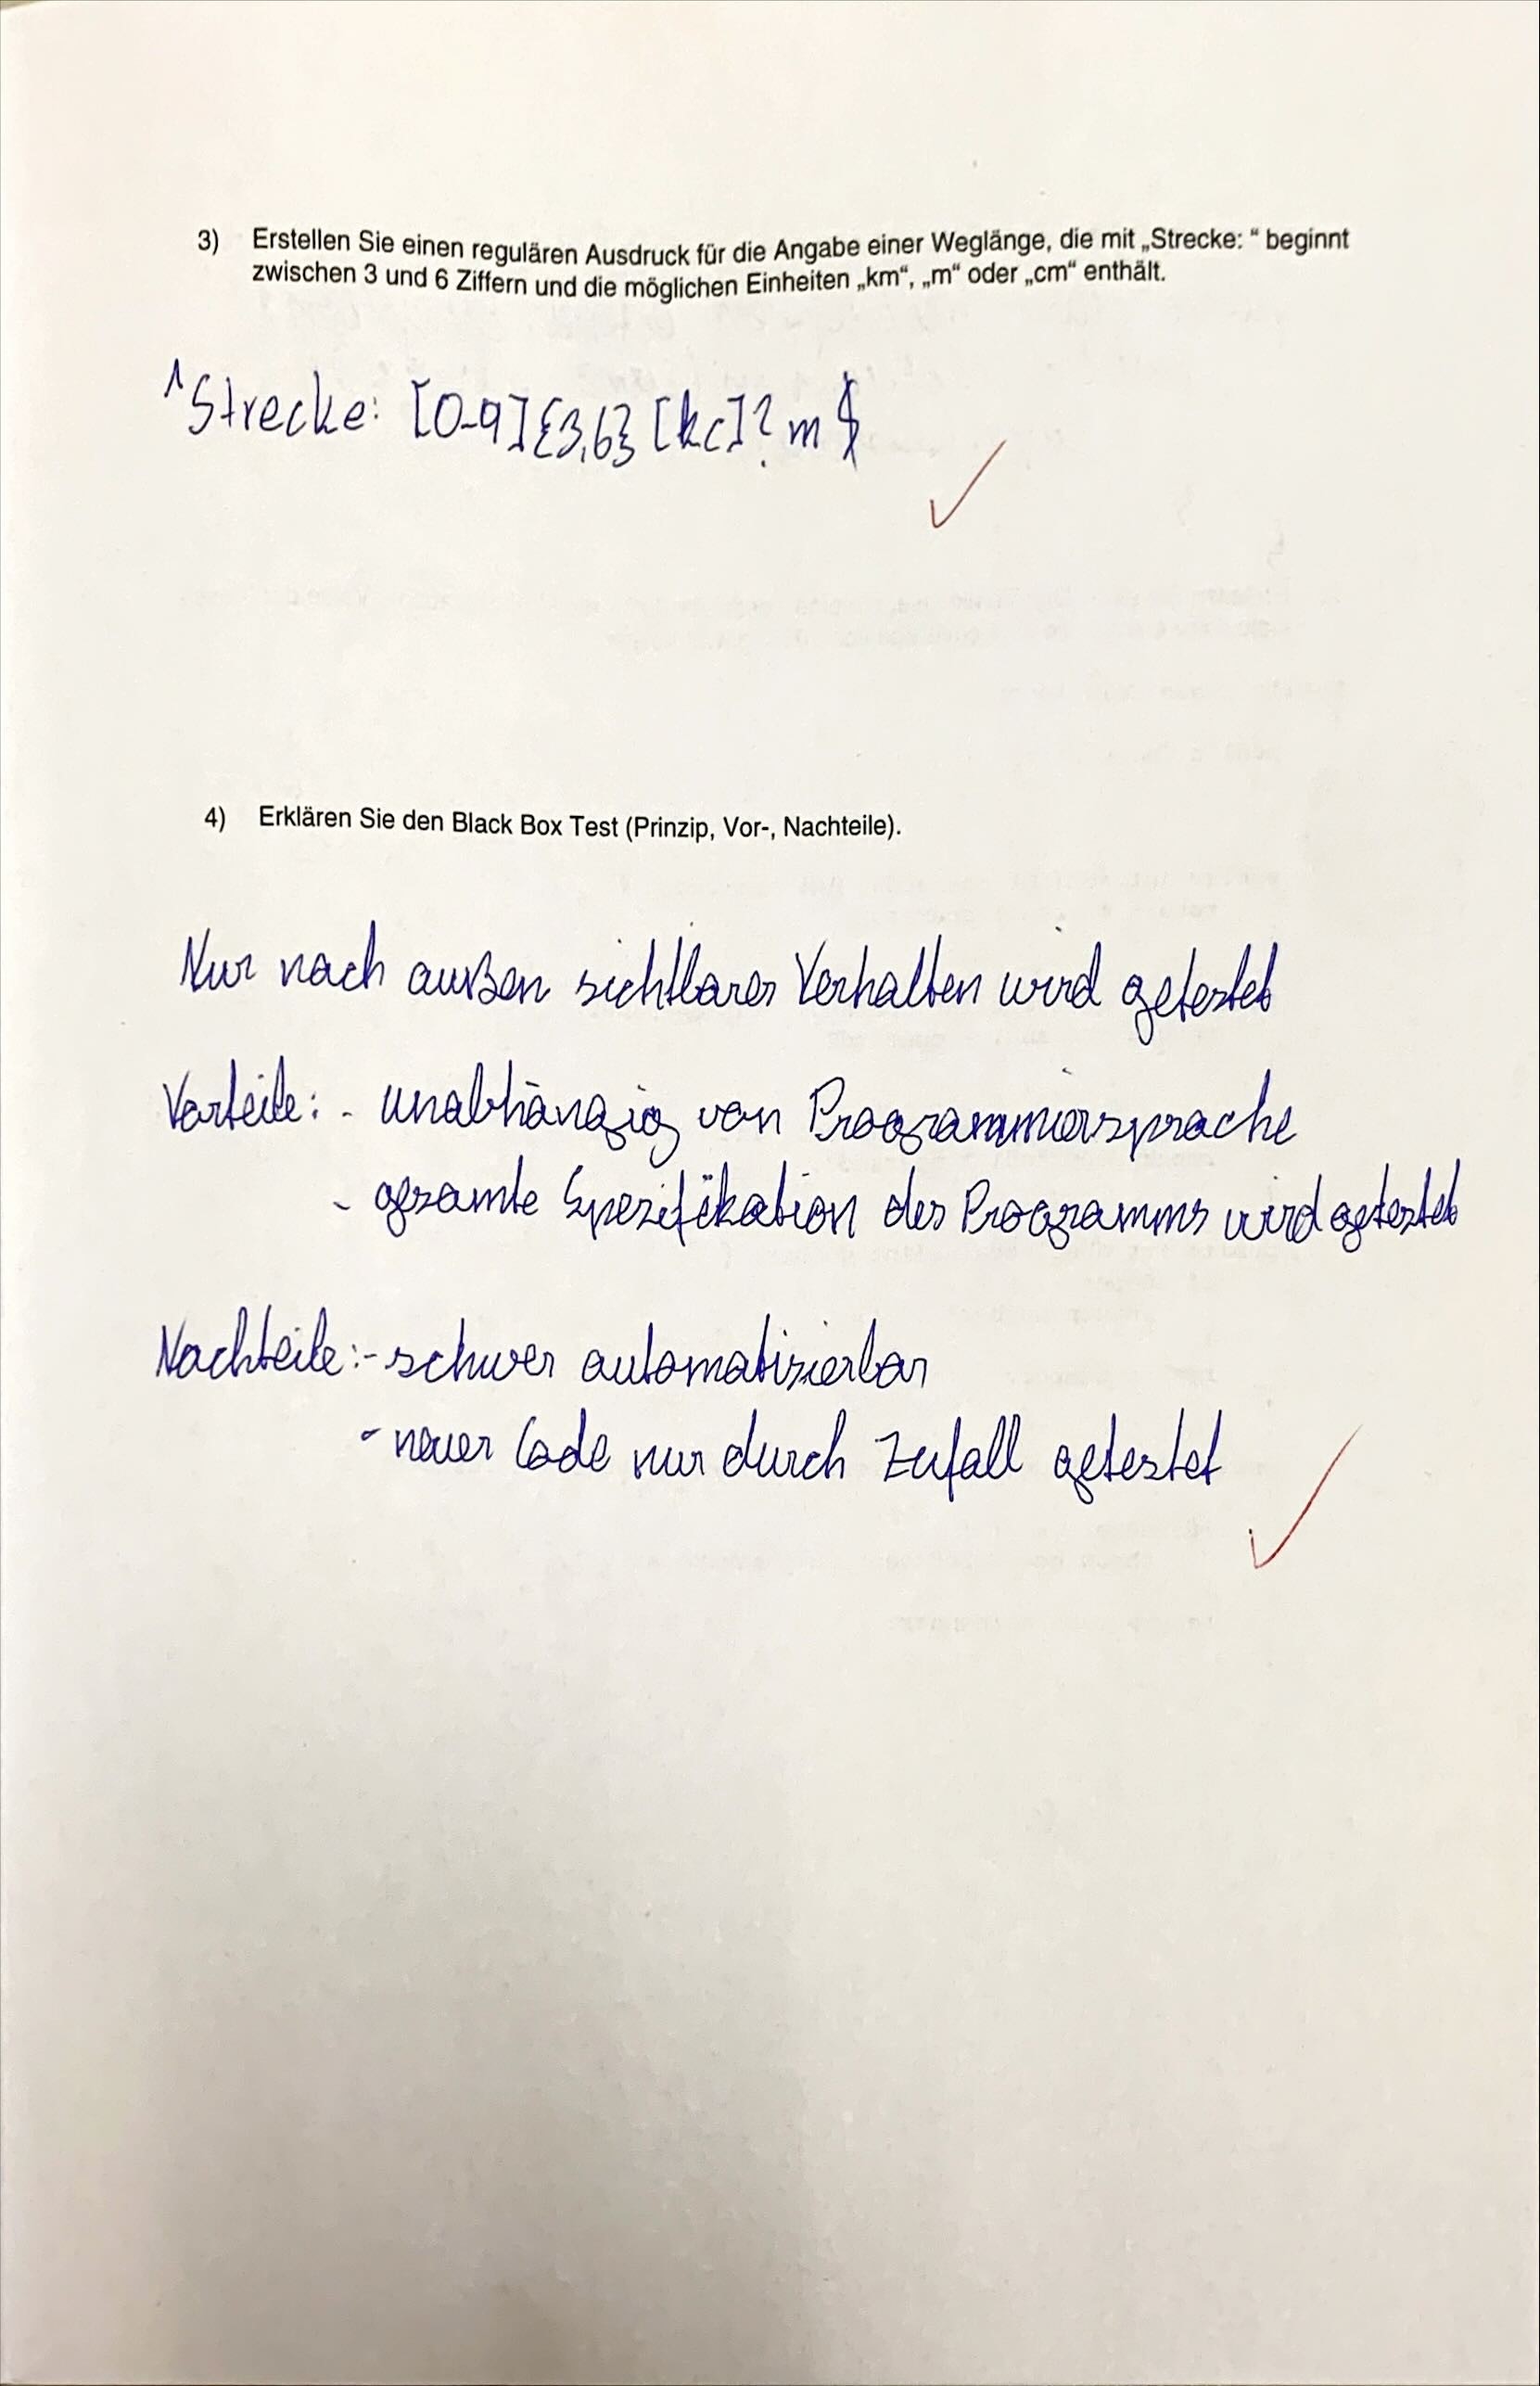 3) Erstellen Sie einen regulären Ausdruck für die Angabe einer Weglänge, die mit „Strecke: “ beginnt
zwischen 3 und 6 Ziffern und die möglichen Einheiten „km“, „m“ oder „cm“ enthält.
^Strecke: [0-9]{3,6}[kc]?m$
4) Erklären Sie den Black Box Test (Prinzip, Vor-, Nachteile).
Nur nach außen sichtbares Verhalten wird getestet
Vorteile: - unabhängig von Programmiersprache
- gesamte Spezifikation des Programms wird getestet
Nachteile: - schwer automatisierbar
- neuer Code nur durch Zufall getestet